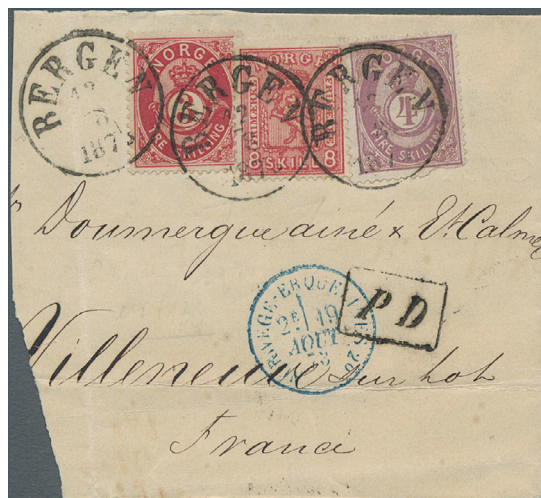 BERGEN
1873
NORGE
3
TRE SKILLING
BERGEN
12
187
NORGE
8 SKILL 8
BERGEN
NORGE
4
FIRE SKILLING
Doumergue ainé & Et Calmel
NORVEGE-ERQUELINES
2E 19
AOUT
73
PD
Villeneuve sur Lot
France